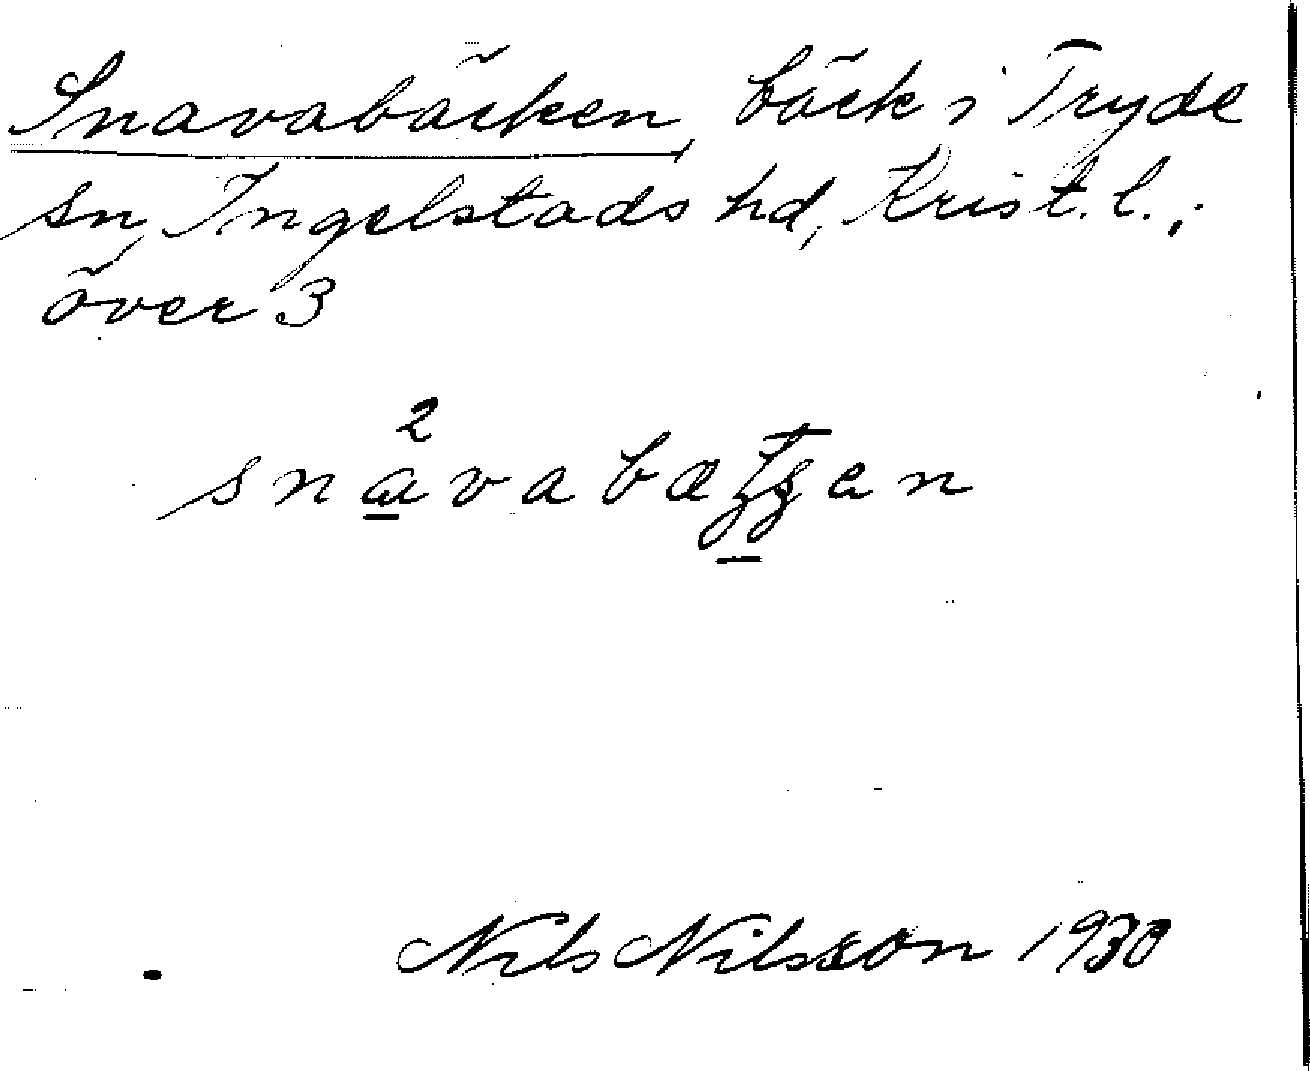 Snavabäcken, bäck i Tryde
sn, Ingelstads hd, Krist. l.;
över 3
Nils Nilsson 1930